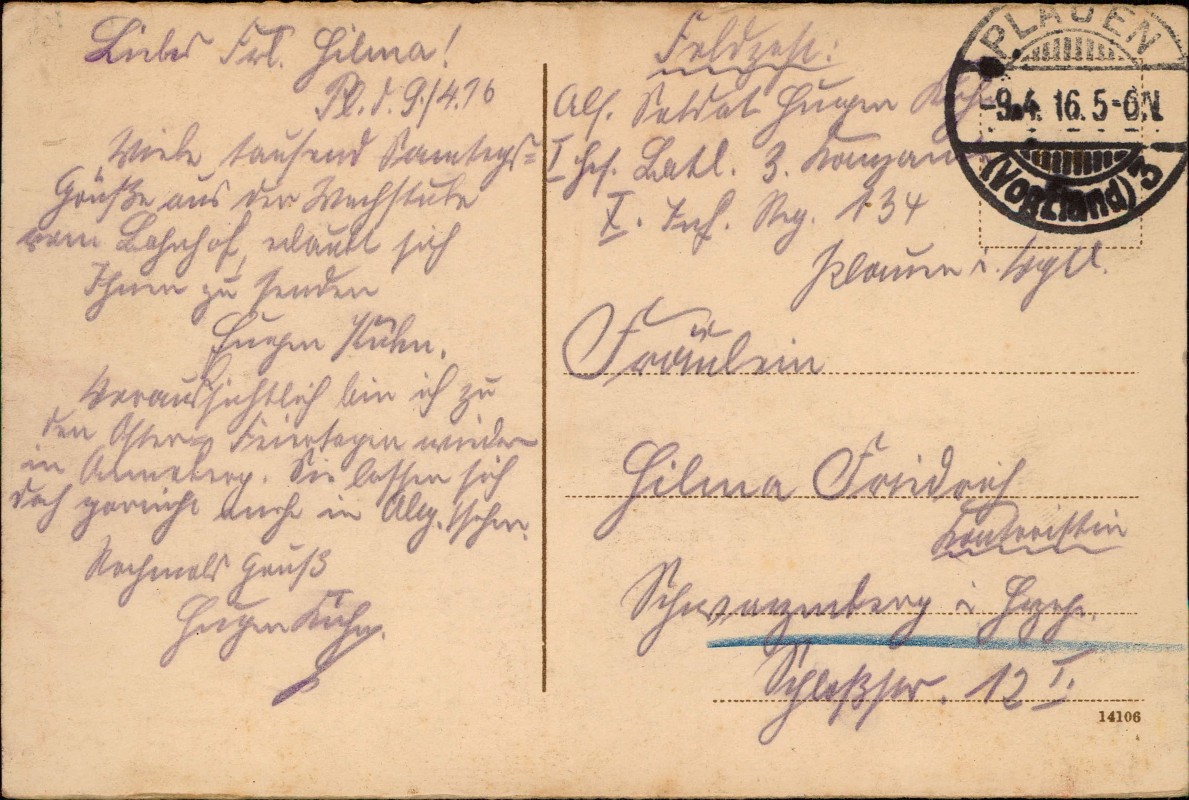 Liebes Frl. Hilma!
Pl. d. 9./4.16
Viele tausend Sonntags-
Grüße aus der Wachstube
vom Bahnhof, erlaubt sich
Ihnen zu senden
Eugen Kühn.
Voraussichtlich bin ich zu
den Oster- Feiertagen wieder
in Annaberg. Sie lassen sich
doch garnicht mehr in Abg. sehen.
Nochmals Gruß
Eugen Kühn.
Feldpost:
Abs. Soldat Eugen Kühn
I Ers. Batl. 3. Kompanie
X. Inf. Reg. 134
Plauen i. Vgtl.
PLAUEN
-9.4.16.5-6N
(Vogtland) 3
Fräulein
Hilma Friedrich
Kontoristin
Schwarzenberg i. Erzgb.
Schloßstr. 12 I.
14106